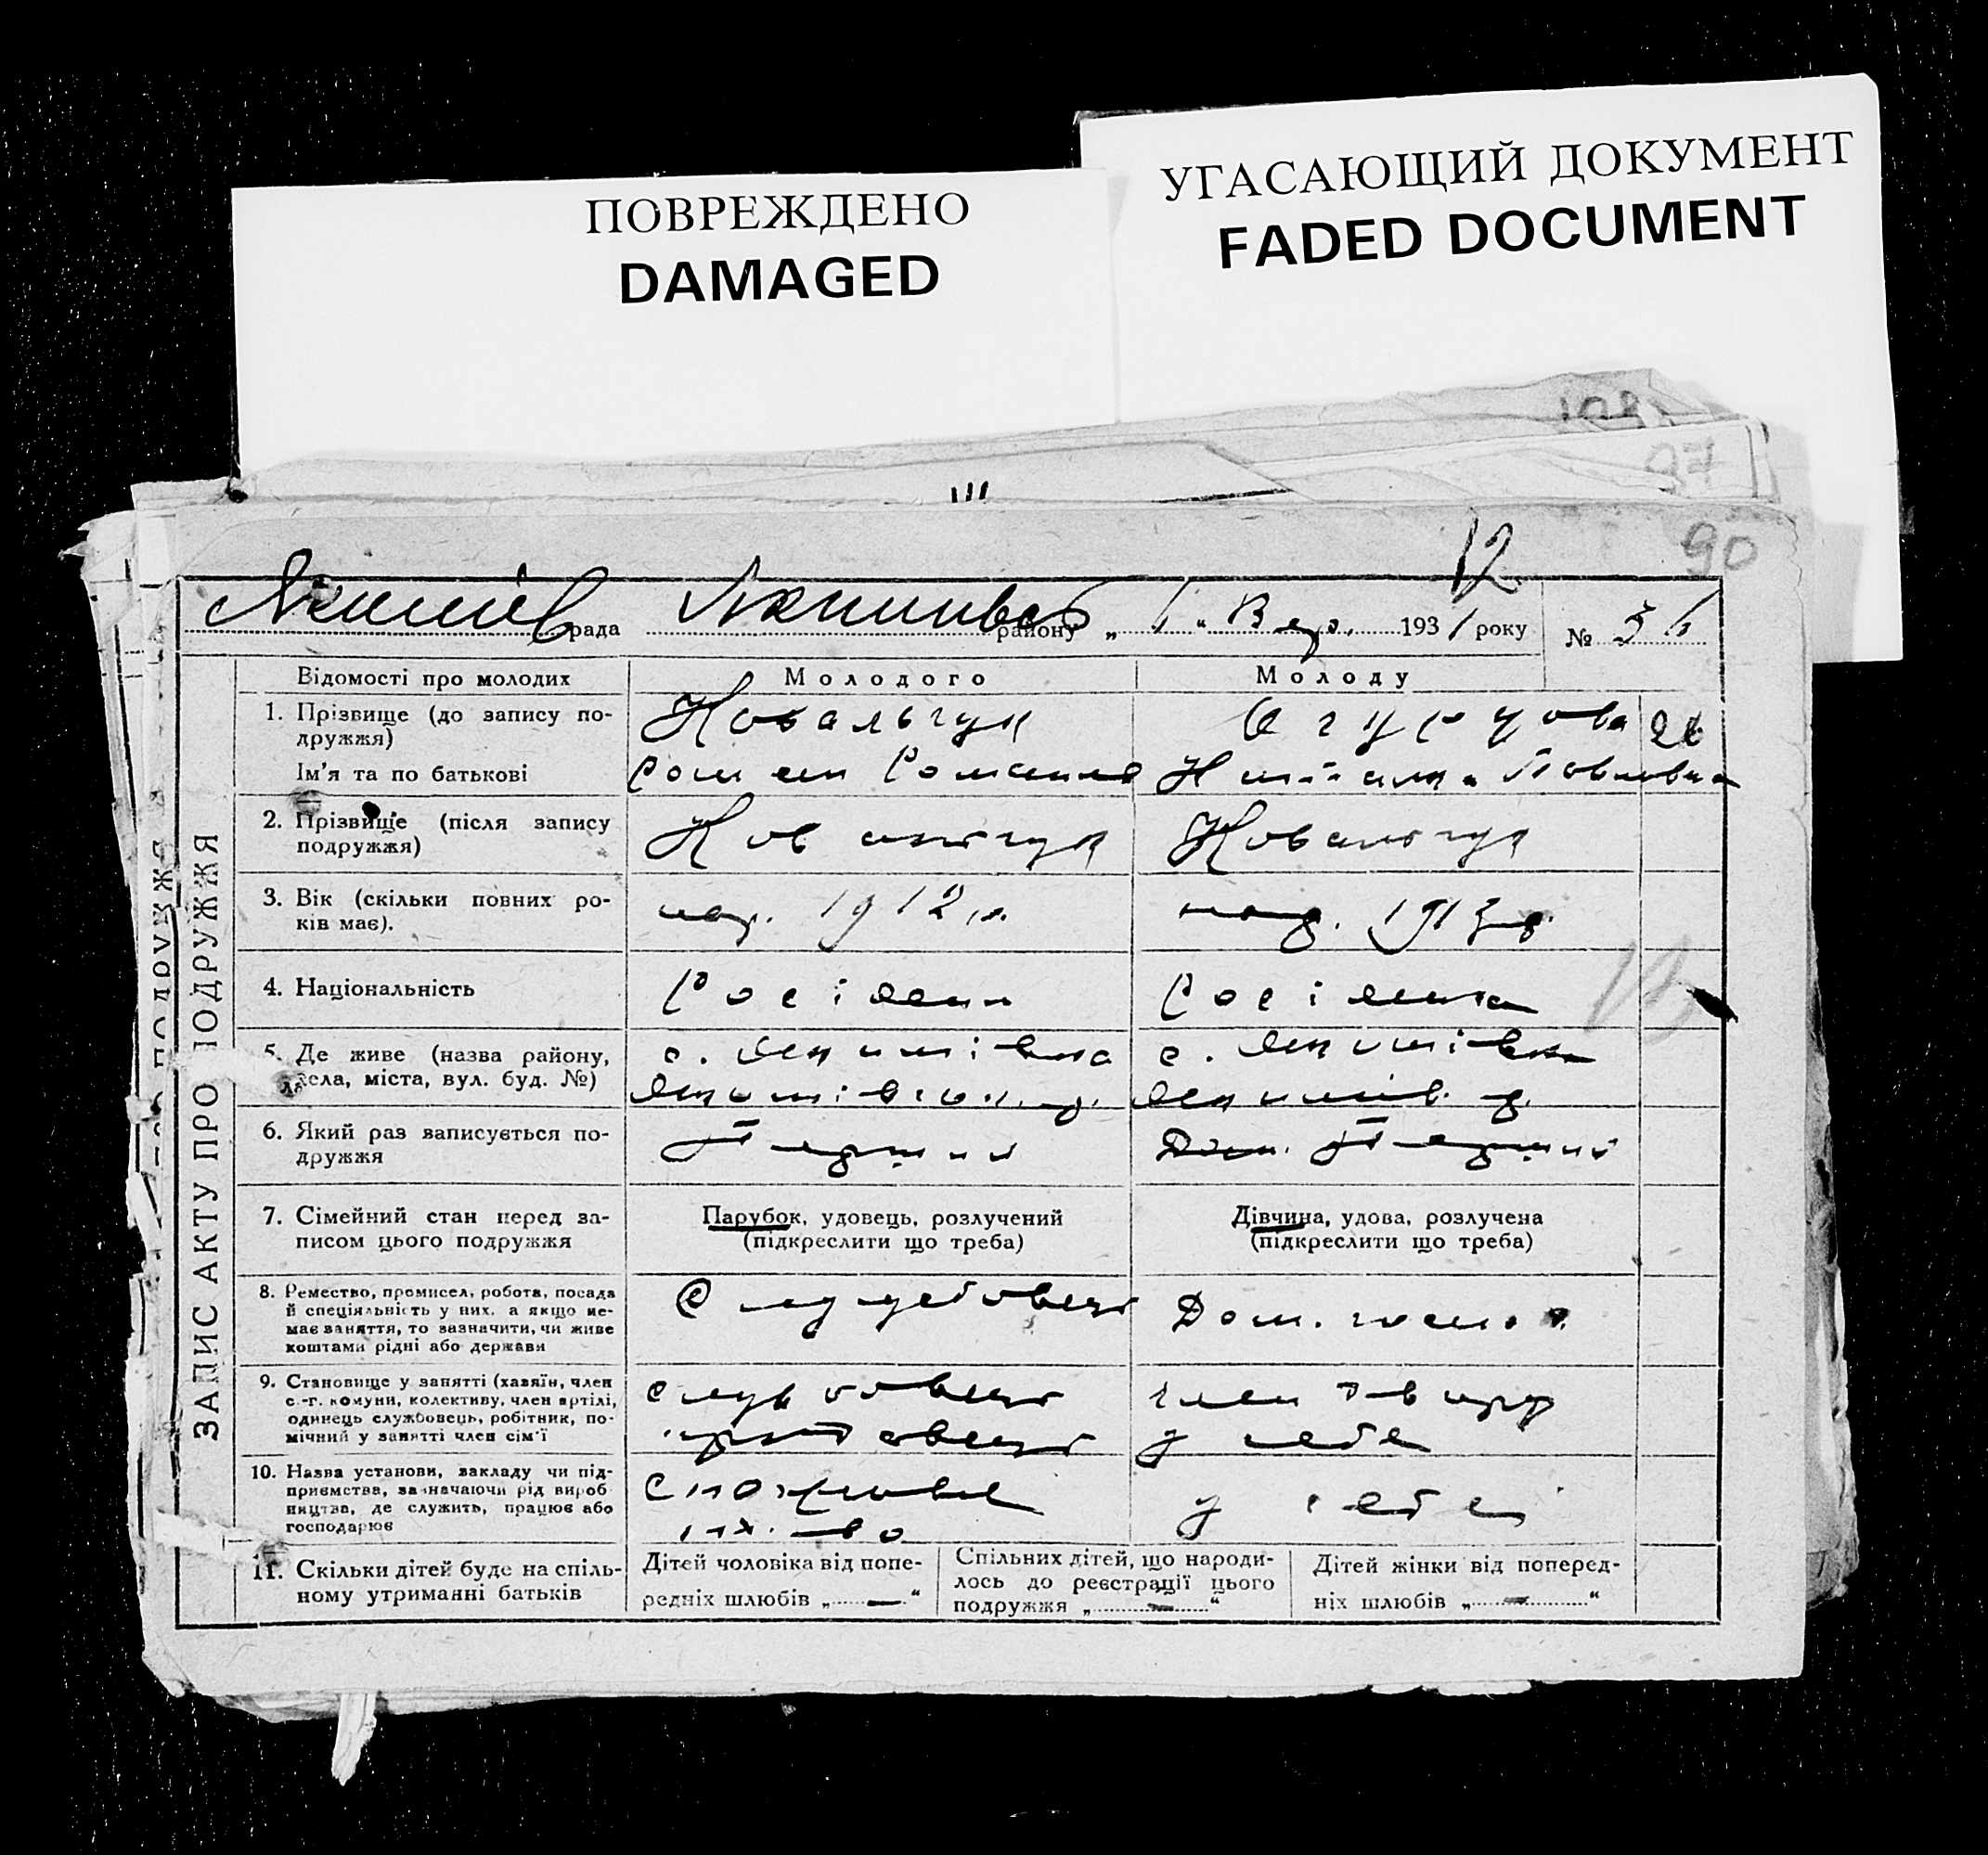 ПОВРЕЖДЕНО
DAMAGED
УГАСАЮЩИЙ ДОКУМЕНТ
FADED DOCUMENT
97
90
12
рада району „ 1 “ Вер. 1931 року № 31
ЗАПИС АКТУ ПРО ПОДРУЖЖЯ
Відомості про молодих Молодого Молоду
1. Прізвище (до запису по-
дружжя)
Ковальчук Огурцова
Ім'я та по батькові
Роман Павловна
2. Прізвище (після запису
подружжя)
Ковальчук Ковальчук
3. Вік (скільки повних ро-
ків має).
нар. 1912 р. нар. 1913 р.
4. Національність
Росіянин Росіянка
5. Де живе (назва району,
села, міста, вул. буд. №)
с. Якимівка с. Якимівка
Якимівськ. р. Якимів. р.
6. Який раз записується по-
дружжя
Перший Перший
7. Сімейний стан перед за-
писом цього подружжя
Парубок, удовець, розлучений
(підкреслити що треба)
Дівчина, удова, розлучена
(підкреслити що треба)
8. Ремество, промисел, робота, посада
й спеціяльність у них, а якщо не-
має заняття, то зазначити, чи живе
коштами рідні або держави
Службовець Дом.
9. Становище у занятті (хазяїн, член
с.-г. комуни, колективу, член артілі,
одинець службовець, робітник, по-
мічний у занятті член сім'ї
службовець член
у себе
10. Назва установи, закладу чи під-
приємства, зазначаючи рід вироб
ництва, де служить, працює або
господарює
у себе
11. Скільки дітей буде на спіль-
ному утриманні батьків
Дітей чоловіка від попе-
редніх шлюбів „ — “
Спільних дітей, що народи-
лось до реєстрації цього
подружжя „ — “
Дітей жінки від поперед-
ніх шлюбів „ — “